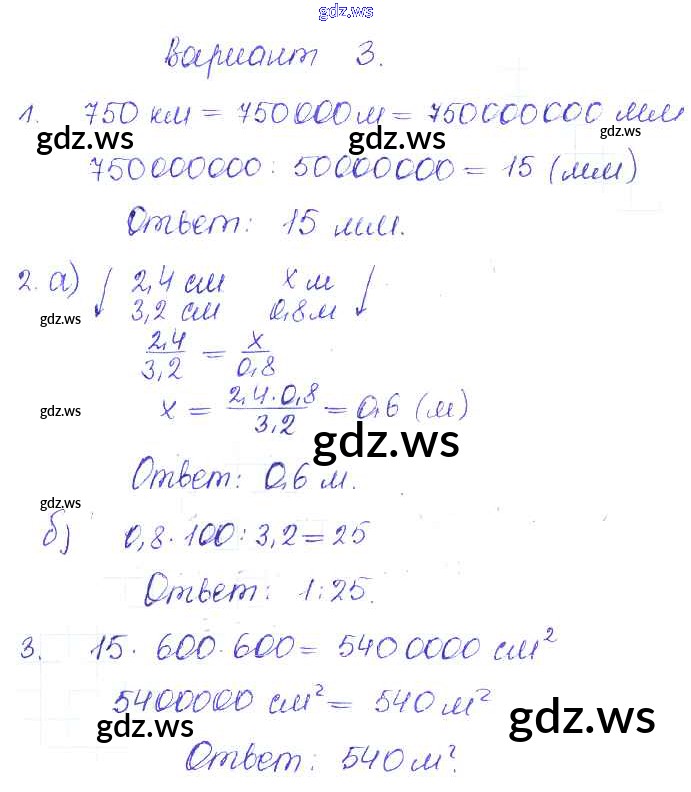 gdz.ws
Вариант 3.
1. 750 км = 750000 м = 750000000 мм
gdz.ws gdz.ws gdz.ws
750000000 : 50000000 = 15 (мм)
Ответ: 15 мм.
2. а) ↓ 2,4 см х м ↓
gdz.ws 3,2 см 0,8 м
2,4/3,2 = х/0,8
gdz.ws х = 2,4·0,8/3,2 = 0,6 (м)
gdz.ws
Ответ: 0,6 м.
gdz.ws
б) 0,8 · 100 : 3,2 = 25
Ответ: 1:25.
3. 15 · 600 · 600 = 5400000 см²
5400000 см² = 540 м²
gdz.ws gdz.ws
Ответ: 540 м².